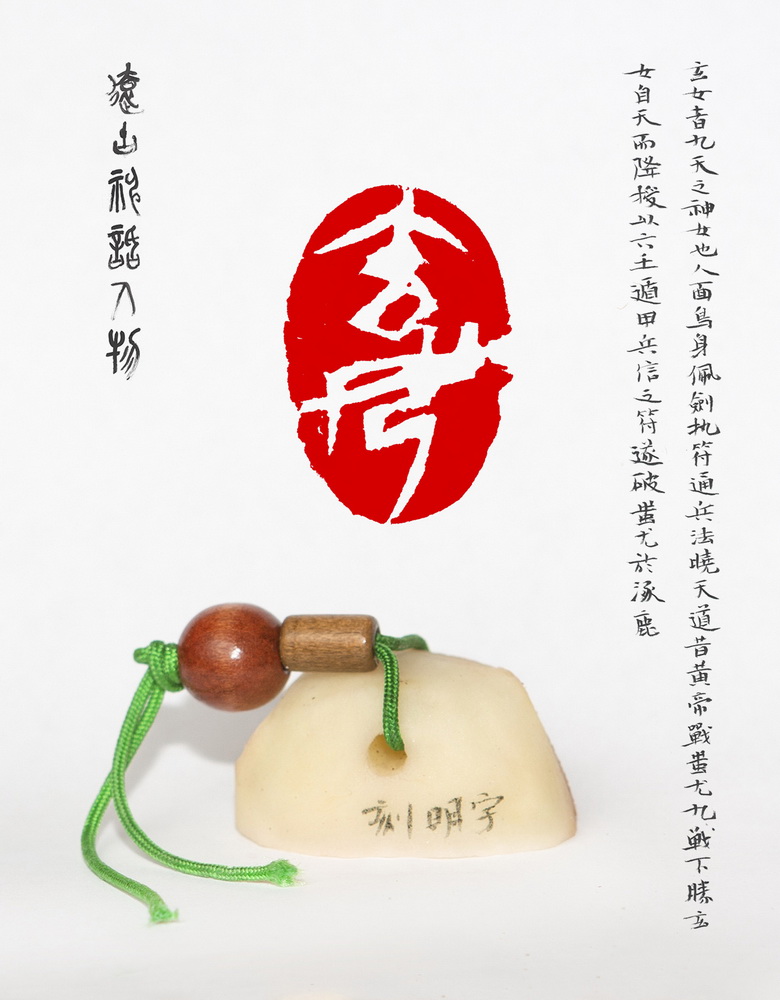 玄女者九天之神女也人面鳥身佩劍执符通兵法曉天道昔黃帝戰蚩尤九戦下勝玄
女自天而降授以六壬遁甲兵信之符遂破蚩尤於涿鹿
玄
神話人物
刻明宇